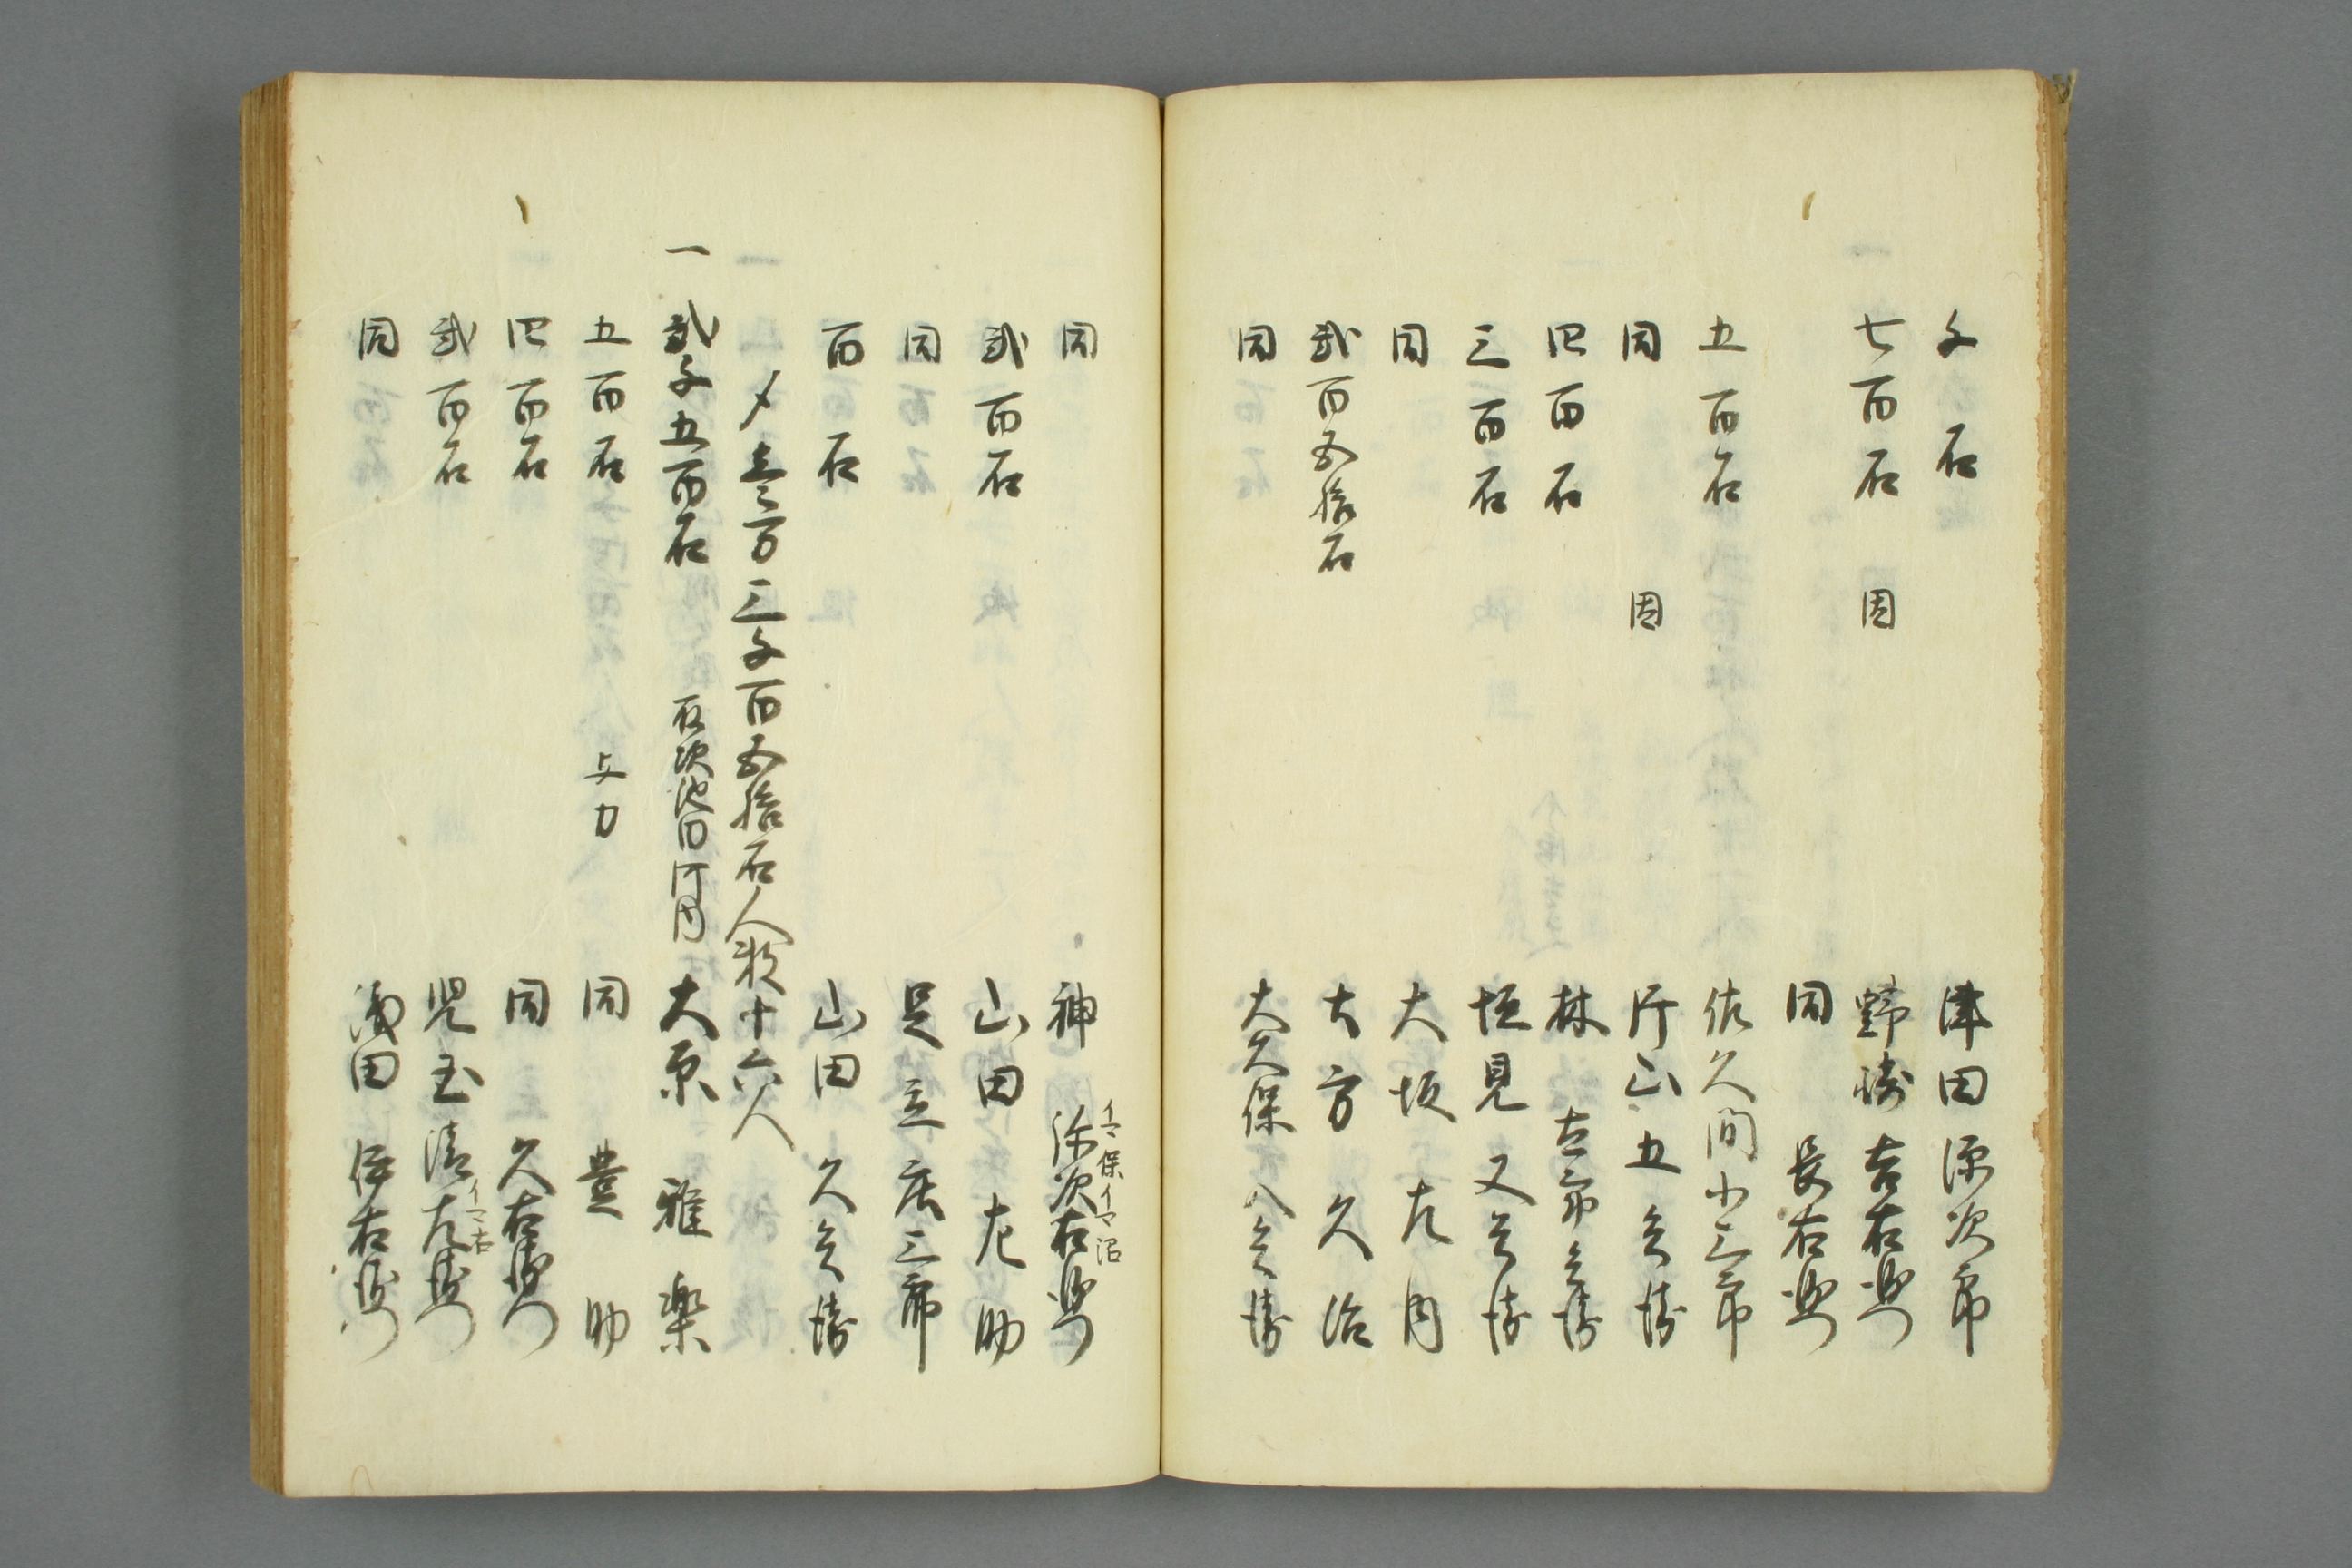 千石 津田源次郎
七百石 因 野崎吉右衛門
同 長右衛門
五百石 佐久間小三郎
同 因 片山五兵衛
四百石 林 古市兵衛
三百石 垣見又兵衛
同 大坂左内
弐百五拾石 大方久治
同 大久保八兵衛
同 神 弥次右衛門
イマ保イマ沼
弐百石 山田左助
同 足立庄三郎
百石 山田久兵衛
〆壱万三千百五拾石人数十六人
一 弐千五百石 石次池田河内 大原雅楽
五百石 与力 同 豊助
四百石 同 久右衛門
弐百石 児玉清左衛門
イマ右
同 浅田伊右衛門